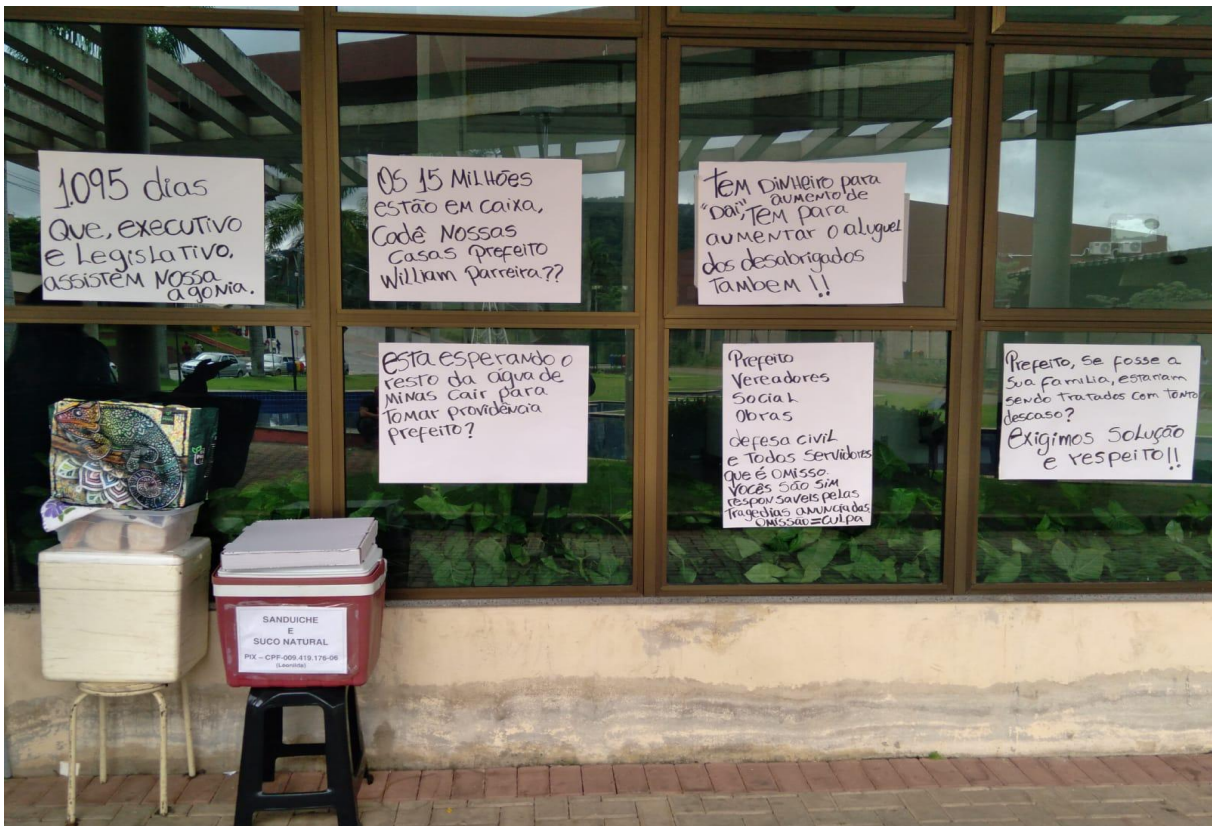 1095 dias
que, executivo
e Legislativo,
assistem nossa
agonia.
OS 15 MiLHÕES
estão em caixa,
Cadê Nossas
Casas Prefeito
William Parreira??
TEM DiNHeiro para
"Dai", aumento de
Tem para
aumentar o aluguel
dos desabrigados
Tambem !!
esta esperando o
resto da água de
Minas cair para
Tomar providência
Prefeito?
Prefeito
Vereadores
Social
Obras
defesa civil
e Todos Servidores
que é omisso.
Vocês são sim
responsaveis pelas
Tragedias anunciadas
Omissão=Culpa
Prefeito, se fosse a
sua familia, estariam
sendo tratados com Tanto
descaso?
Exigimos Solução
e respeito!!
SANDUICHE
E
SUCO NATURAL
PIX – CPF-009.419.176-06
(Leonilda)